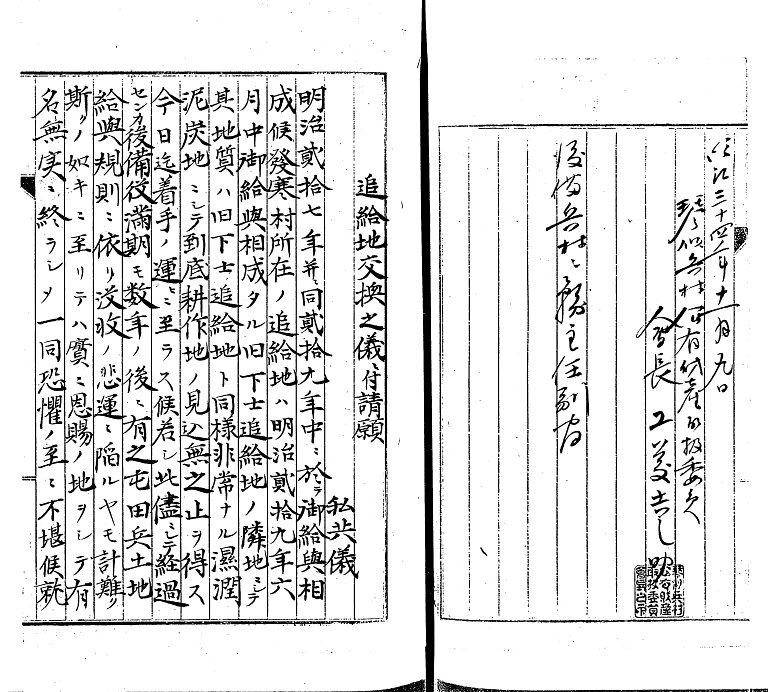 明治三十四年十一月九日
琴似兵村公有財産取扱委員
会長
後備兵村々務主任副官
追給地交換之儀ニ付請願
私共儀
明治貳拾七年并ニ同貳拾九年中ニ於テ御給與相
成候發寒村所在ノ追給地ハ明治貳拾九年六
月中御給與相成タル旧下士追給地ノ隣地ニシテ
其地質ハ旧下士追給地ト同様非常ナル濕潤
泥炭地ニシテ到底耕作地ノ見込無之止ヲ得ス
今日迄着手ノ運ニ至ラス候若シ此儘ニシテ経過
センカ後備役満期モ数年ノ後ニ有之屯田兵土地
給與規則ニ依リ没収ノ悲運ニ陥ルヤモ計難ク
斯ノ如キニ至リテハ實ニ恩賜ノ地ヲシテ有
名無実ニ終ラシメ一同恐懼ノ至ニ不堪候就